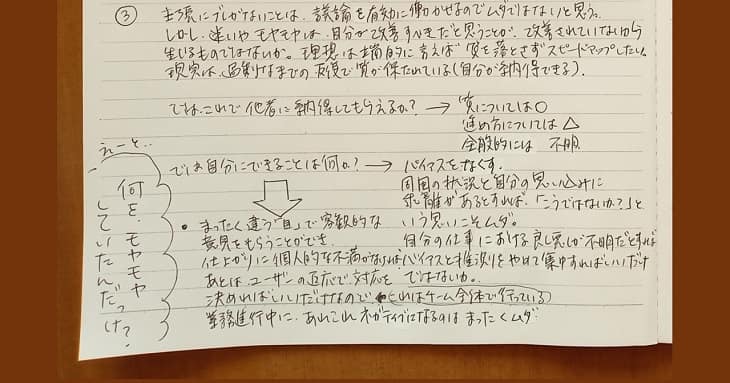 ③ 主張にブレがないことは、議論を有効に働かせるのでムダではないと思う。
しかし、迷いやモヤモヤは、自分が改善すべきだと思うことが、改善されていないから
生じるものではないか。理想は端的に言えば 質を落とさずスピードアップしたい。
現実は、過剰なまでの反復で質が保たれている(自分が納得できる)。
では、これで他者に納得してもらえるか? → 質については○
進め方については△
全般的には 不明
では自分にできることは何か? → バイアスをなくす。
周囲の状況と自分の思い込みに
乖離があるとすれば、「こうではないか?」と
いう思いこそムダ。
自分の仕事における良し悪しが不明だとすれば
バイアスと推測りをやめて集中すればいいだけ
ではないか。
• まったく違う「目」で客観的な
意見をもらうことができ、
仕上がりに個人的な不満がなければ
あとは、ユーザーの反応で対応を
決めればいいだけなので ←(これはゲーム全体で行っている)
業務進行中に、あれこれネガティブになるのは まったくムダ
えーと…
何を、モヤモヤ
していたんだっけ?